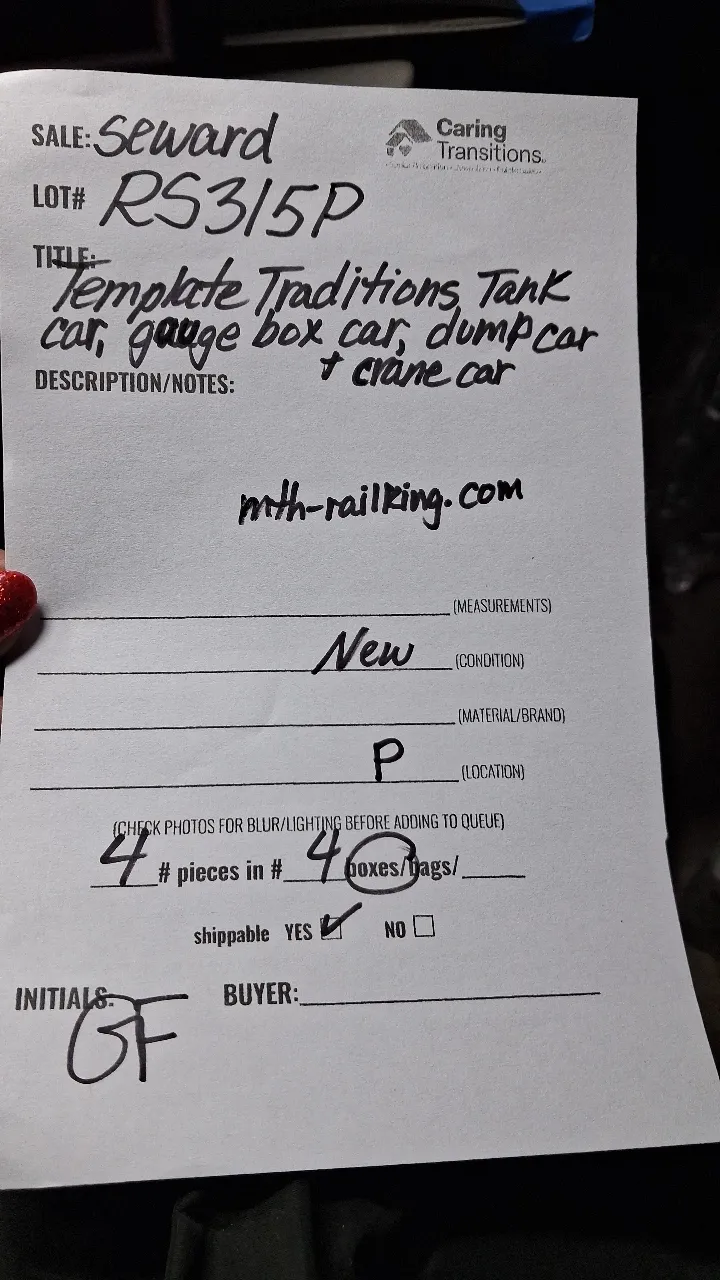 SALE: Seward
Caring
Transitions
LOT# RS315P
TITLE:
Template Traditions, Tank
car, gauge box car, dump car
+ crane car
DESCRIPTION/NOTES:
mth-railking.com
(MEASUREMENTS)
New (CONDITION)
(MATERIAL/BRAND)
P (LOCATION)
(CHECK PHOTOS FOR BLUR/LIGHTING BEFORE ADDING TO QUEUE)
4 # pieces in # 4 boxes/bags/
shippable YES ✓ NO
INITIALS: GF BUYER: